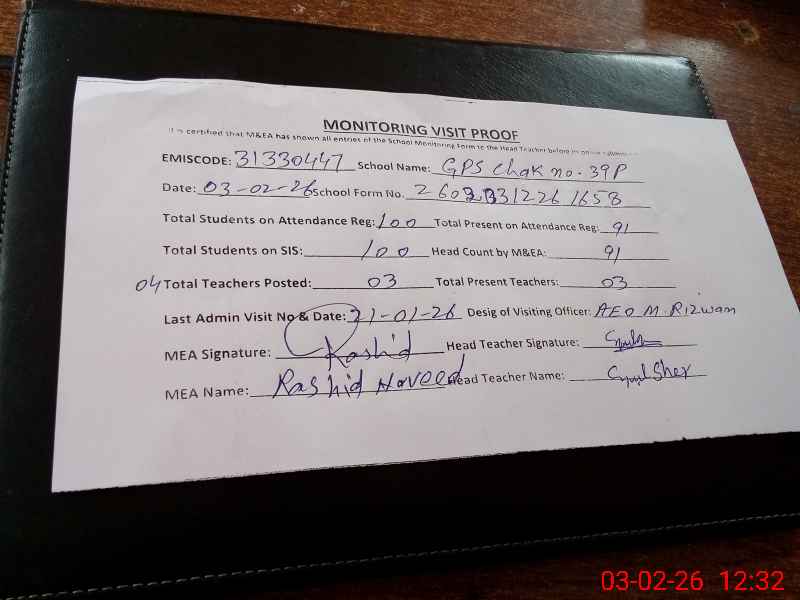 MONITORING VISIT PROOF
It is certified that M&EA has shown all entries of the School Monitoring Form to the Head Teacher before its online
EMISCODE: 31330447 School Name: GPS Chak no. 39P
Date: 03-02-26 School Form No. 2602 31226 1658
Total Students on Attendance Reg: 100 Total Present on Attendance Reg: 91
Total Students on SIS: 100 Head Count by M&EA: 91
04 Total Teachers Posted: 03 Total Present Teachers: 03
Last Admin Visit No & Date: 21-01-26 Desig of Visiting Officer: AEO M. Rizwan
MEA Signature: Rashid Head Teacher Signature:
MEA Name: Rashid Naveed Head Teacher Name: Sher
03-02-26 12:32